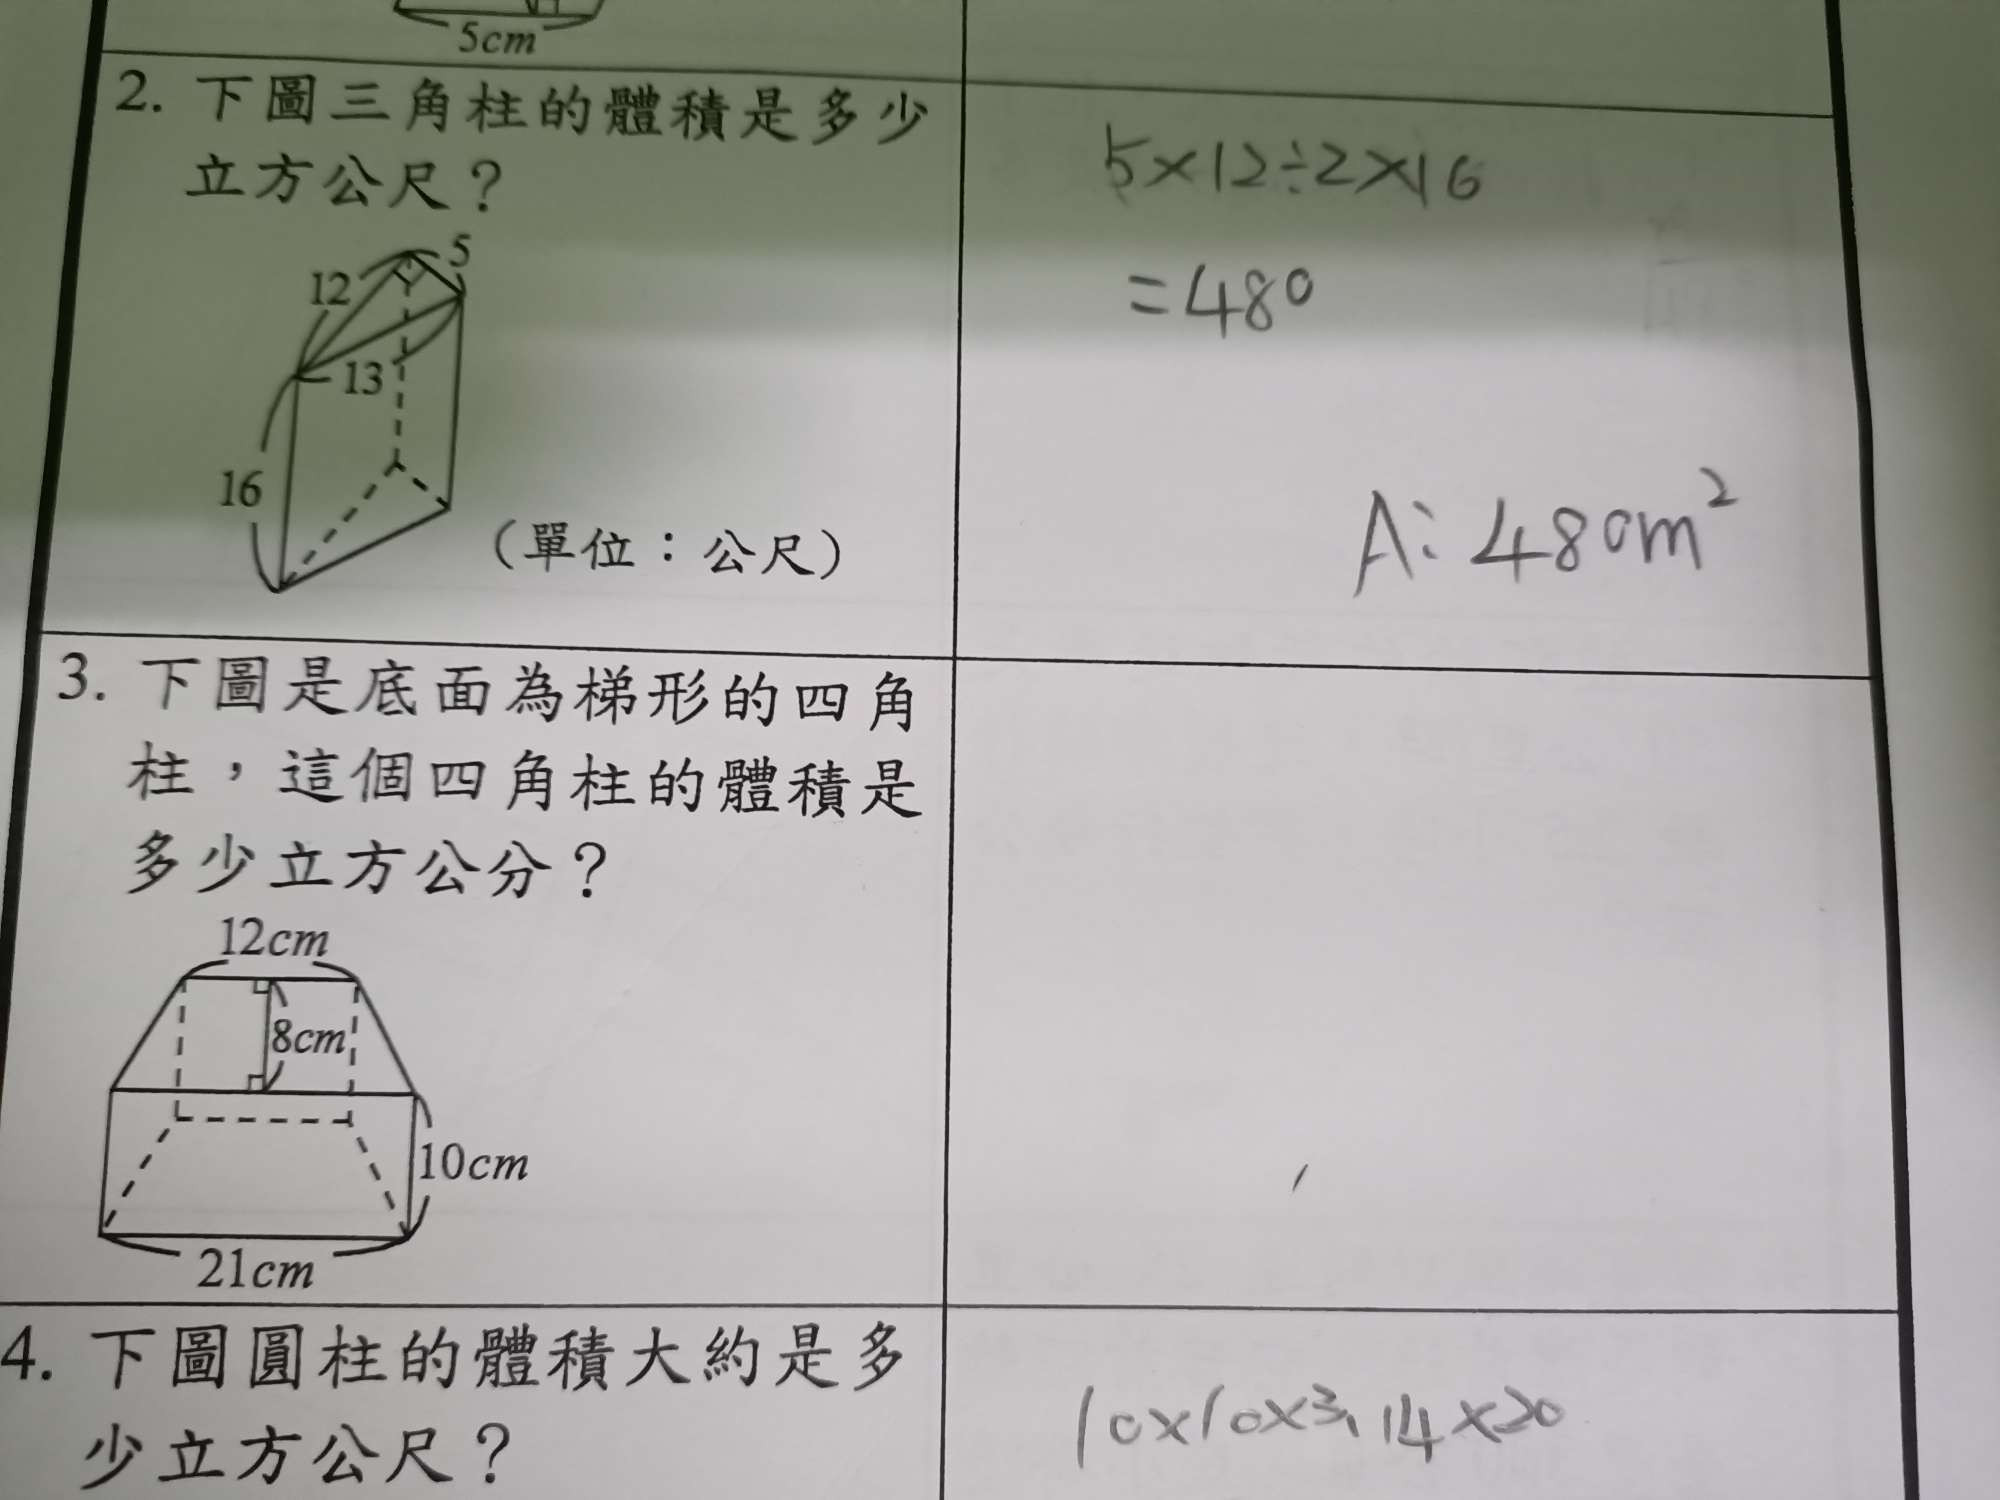 5cm
2. 下圖三角柱的體積是多少
立方公尺？
12
5
13
16
（單位：公尺）
5×12÷2×16
=480
A：480m²
3. 下圖是底面為梯形的四角
柱，這個四角柱的體積是
多少立方公分？
12cm
8cm
10cm
21cm
4. 下圖圓柱的體積大約是多
少立方公尺？
10×10×3.14×20